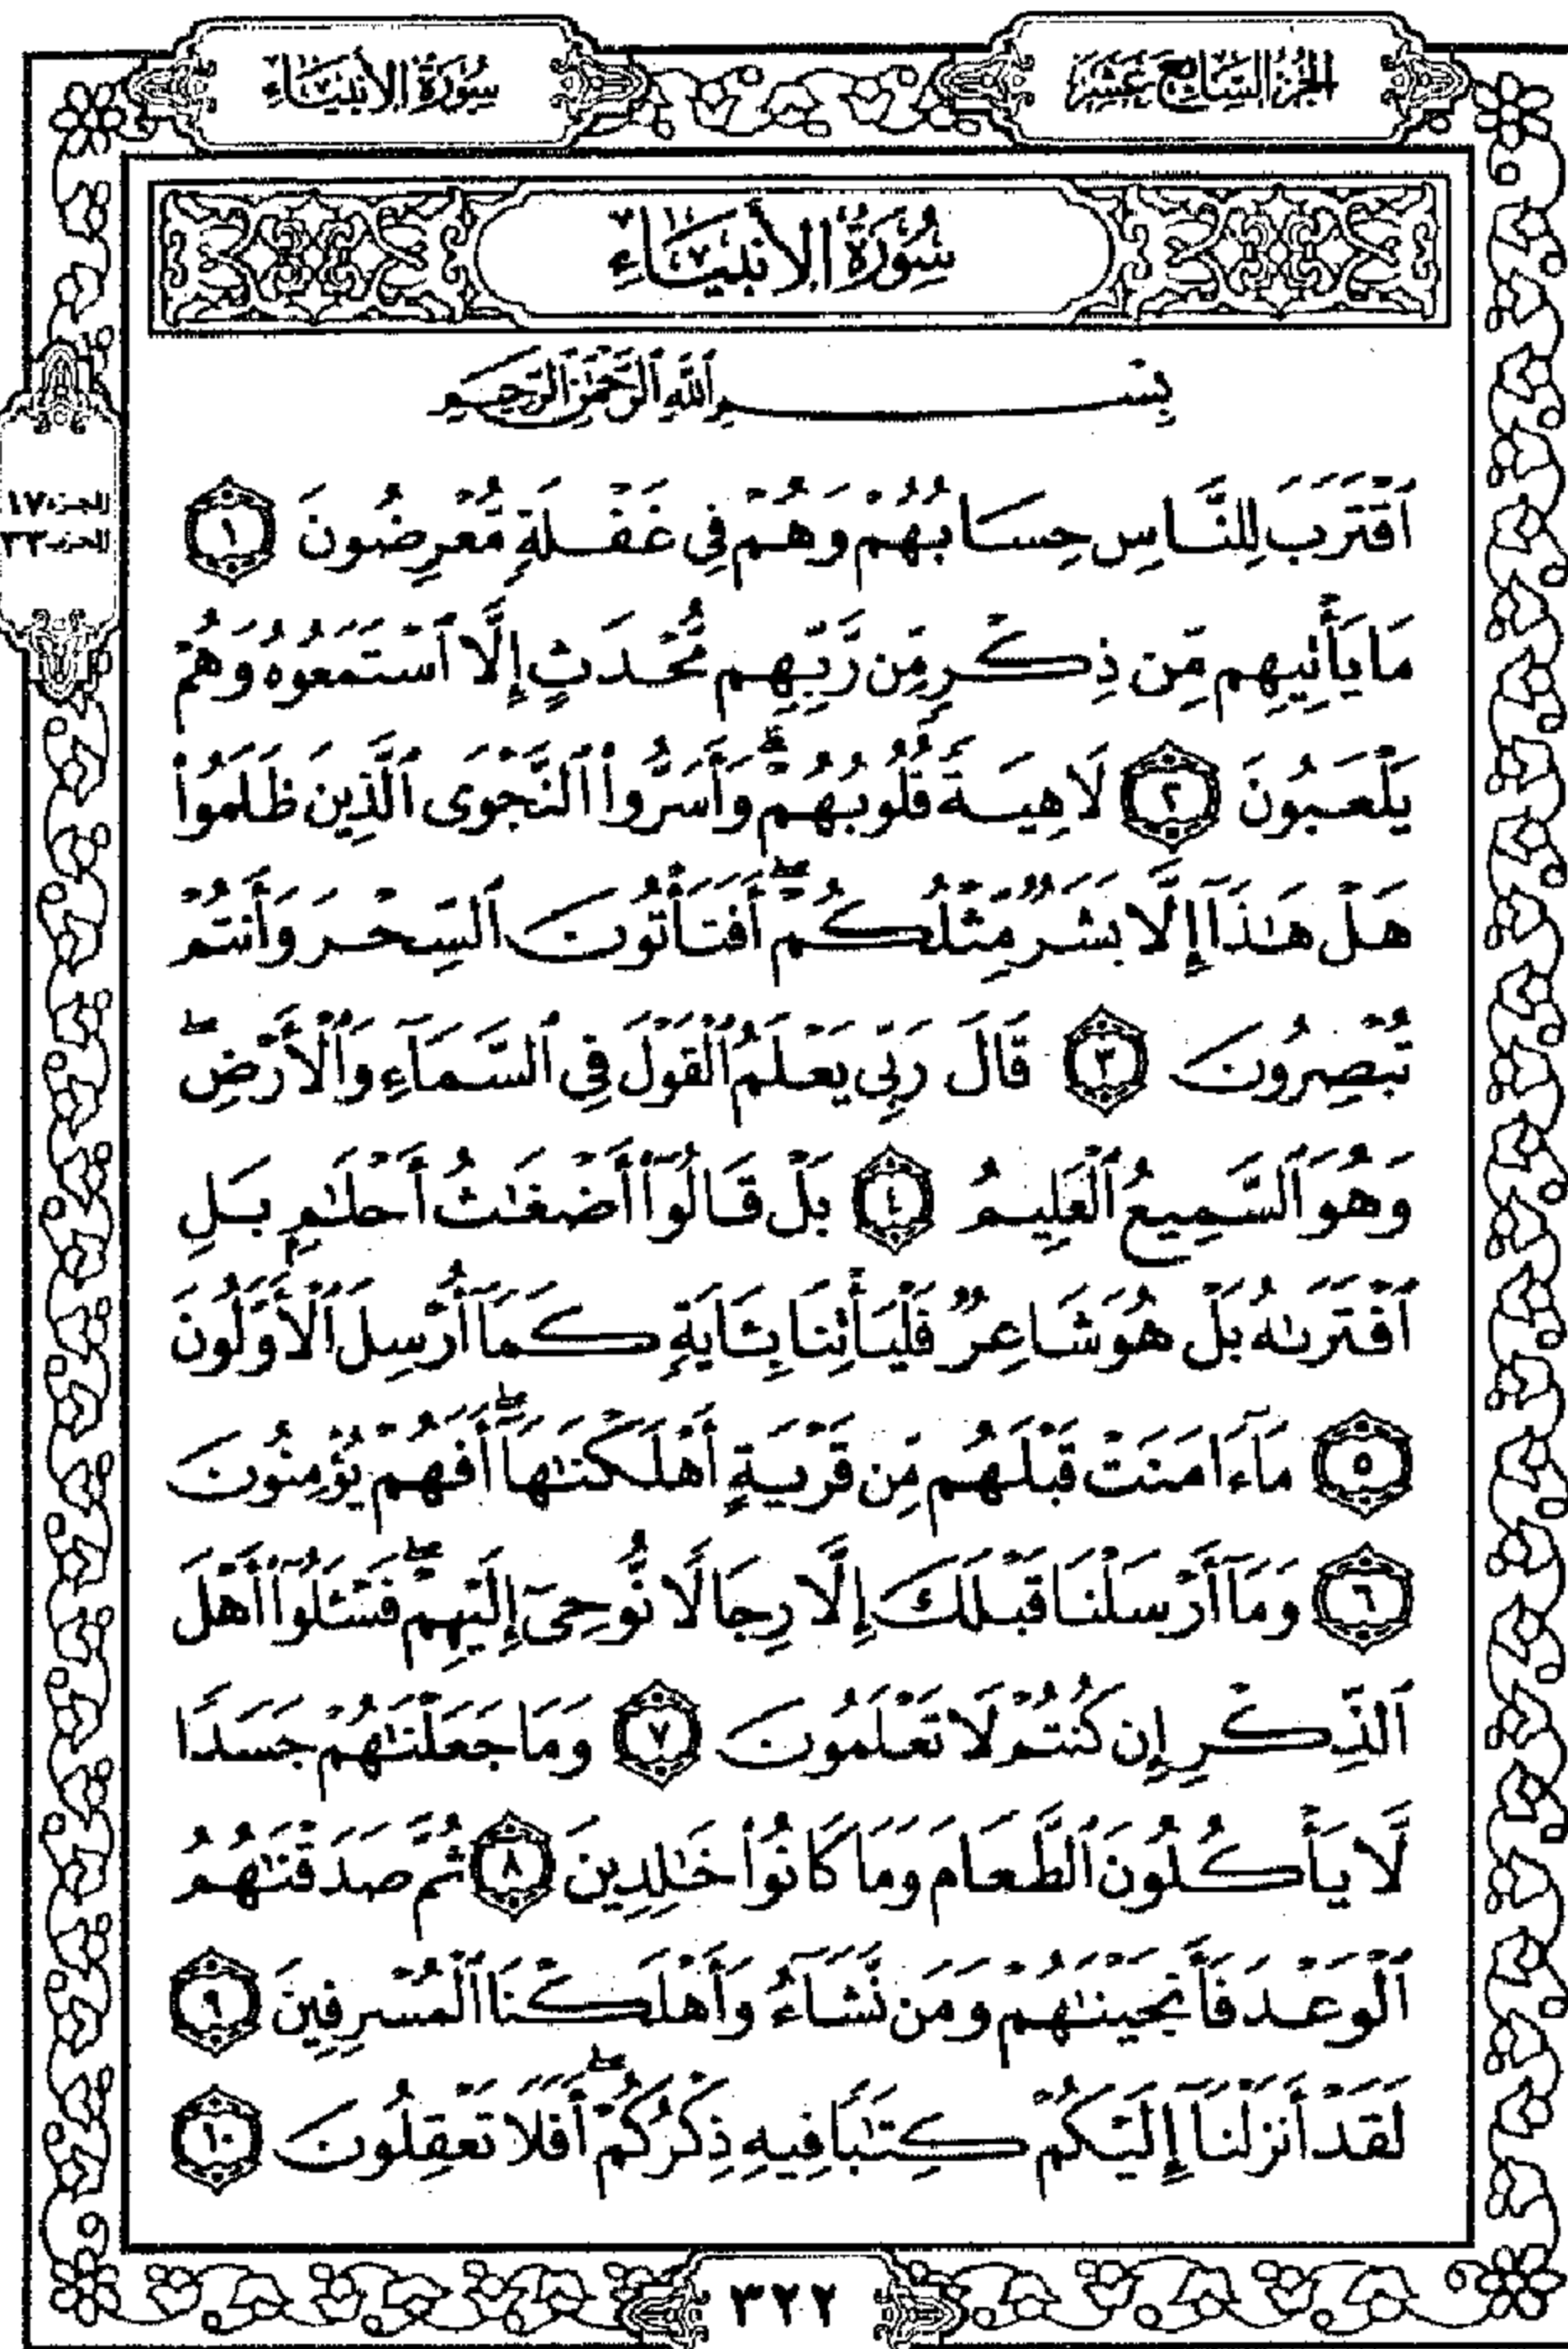 الجزء السابع عشر
سورة الأنبياء
سُورَةُ الأَنبِيَاءِ
بِسْمِ ٱللَّهِ ٱلرَّحْمَٰنِ ٱلرَّحِيمِ
ٱقْتَرَبَ لِلنَّاسِ حِسَابُهُمْ وَهُمْ فِى غَفْلَةٍ مُّعْرِضُونَ ١
مَا يَأْتِيهِم مِّن ذِكْرٍ مِّن رَّبِّهِم مُّحْدَثٍ إِلَّا ٱسْتَمَعُوهُ وَهُمْ
يَلْعَبُونَ ٢ لَاهِيَةً قُلُوبُهُمْ ۗ وَأَسَرُّوا۟ ٱلنَّجْوَى ٱلَّذِينَ ظَلَمُوا۟
هَلْ هَٰذَآ إِلَّا بَشَرٌ مِّثْلُكُمْ ۖ أَفَتَأْتُونَ ٱلسِّحْرَ وَأَنتُمْ
تُبْصِرُونَ ٣ قَالَ رَبِّى يَعْلَمُ ٱلْقَوْلَ فِى ٱلسَّمَآءِ وَٱلْأَرْضِ ۖ
وَهُوَ ٱلسَّمِيعُ ٱلْعَلِيمُ ٤ بَلْ قَالُوٓا۟ أَضْغَٰثُ أَحْلَٰمٍ بَلِ
ٱفْتَرَىٰهُ بَلْ هُوَ شَاعِرٌ فَلْيَأْتِنَا بِـَٔايَةٍ كَمَآ أُرْسِلَ ٱلْأَوَّلُونَ
٥ مَآ ءَامَنَتْ قَبْلَهُم مِّن قَرْيَةٍ أَهْلَكْنَٰهَآ ۖ أَفَهُمْ يُؤْمِنُونَ
٦ وَمَآ أَرْسَلْنَا قَبْلَكَ إِلَّا رِجَالًا نُّوحِىٓ إِلَيْهِمْ ۖ فَسْـَٔلُوٓا۟ أَهْلَ
ٱلذِّكْرِ إِن كُنتُمْ لَا تَعْلَمُونَ ٧ وَمَا جَعَلْنَٰهُمْ جَسَدًا
لَّا يَأْكُلُونَ ٱلطَّعَامَ وَمَا كَانُوا۟ خَٰلِدِينَ ٨ ثُمَّ صَدَقْنَٰهُمُ
ٱلْوَعْدَ فَأَنجَيْنَٰهُمْ وَمَن نَّشَآءُ وَأَهْلَكْنَا ٱلْمُسْرِفِينَ ٩
لَقَدْ أَنزَلْنَآ إِلَيْكُمْ كِتَٰبًا فِيهِ ذِكْرُكُمْ ۖ أَفَلَا تَعْقِلُونَ ١٠
الجزء ١٧
الحزب ٣٣
٣٢٢